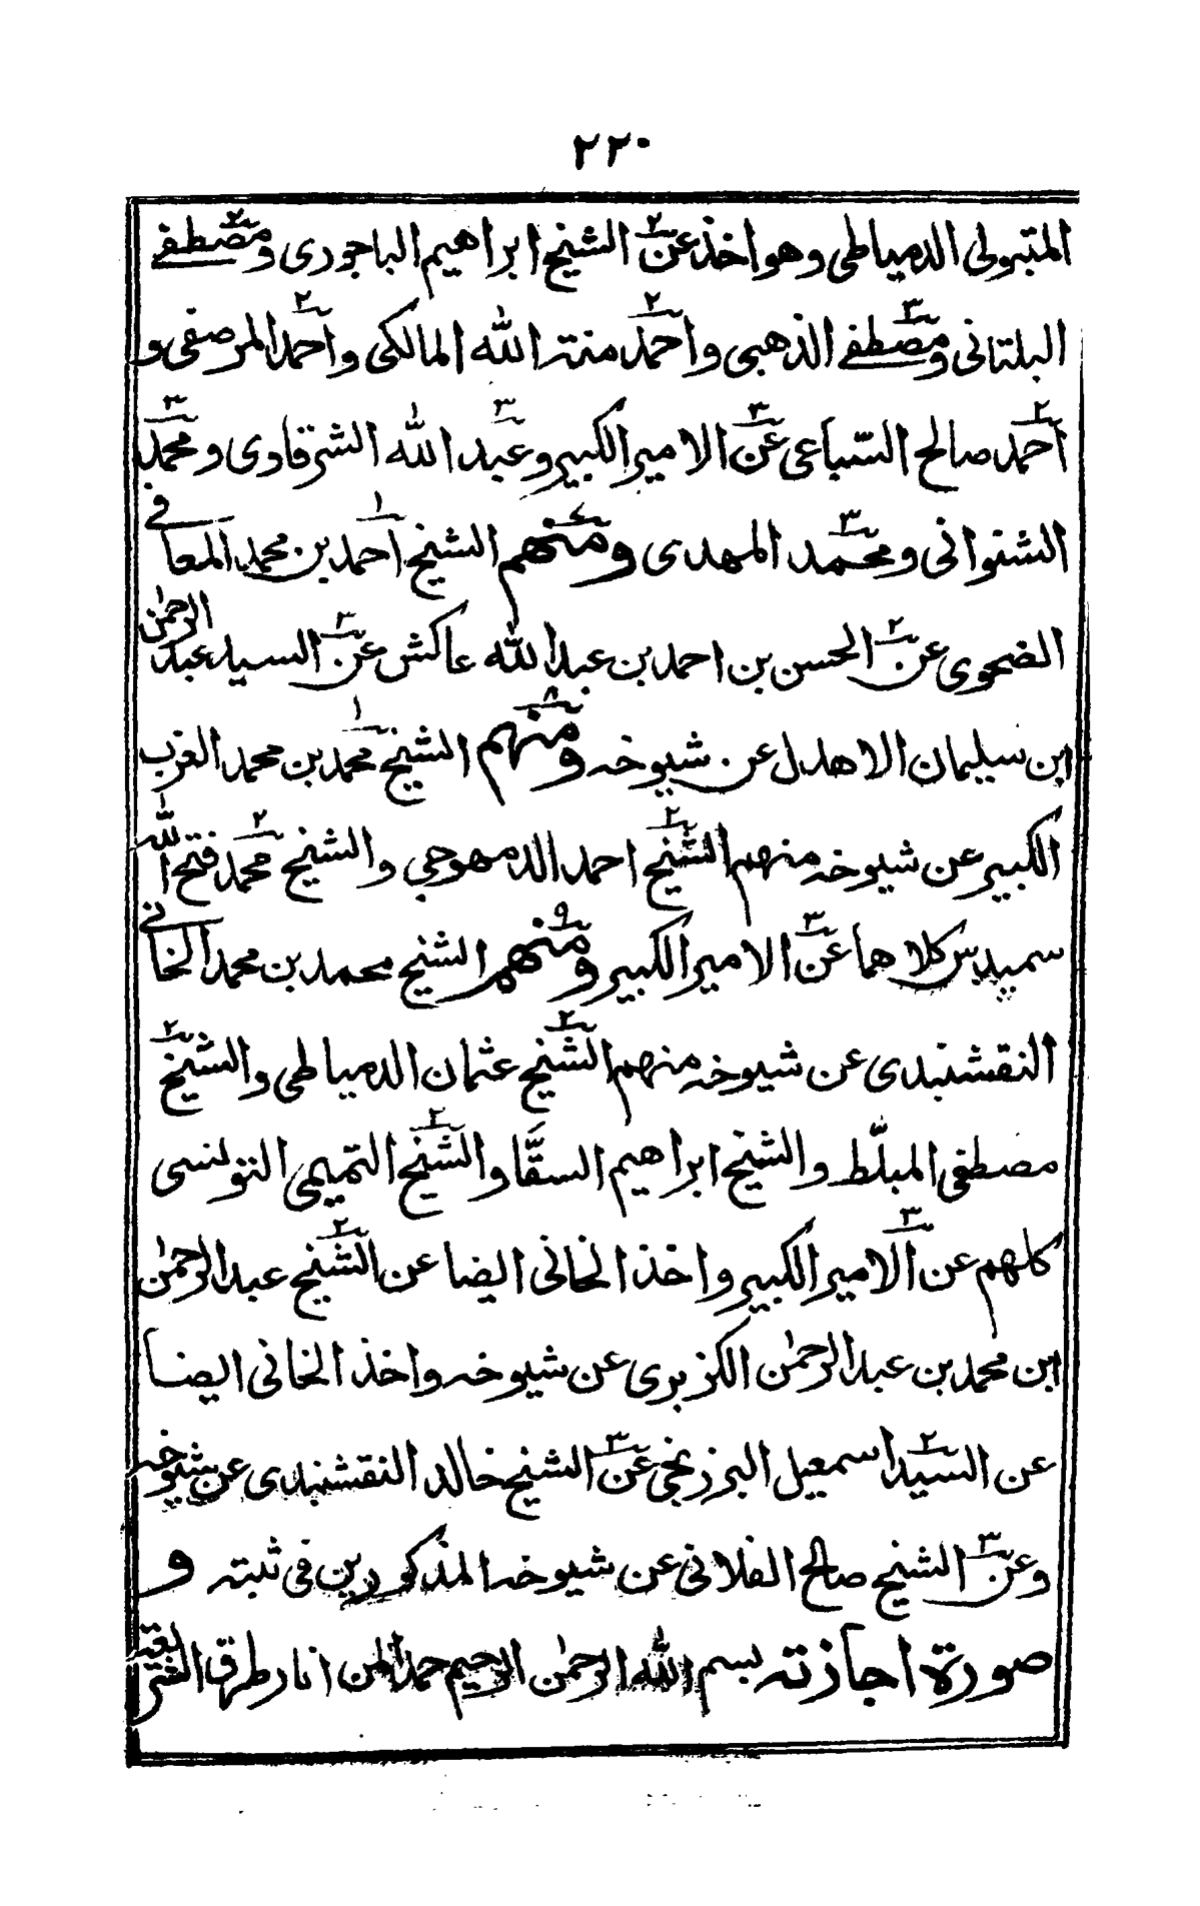 ٢٢٠
المتبولى الدمياطى وهو اخذ عن الشيخ ابراهيم الباجورى ومصطفى
البلتانى ومصطفى الذهبى واحمد منة الله المالكى واحمد المرصفى و
احمد صالح السباعى عن الامير الكبير وعبد الله الشرقاوى ومحمد
الشنوانى ومحمد المهدى ومنهم الشيخ احمد بن محمد المعافى
الضحوى عن الحسن بن احمد بن عبد الله عاكش عن السيد عبد الرحمٰن
ابن سليمان الاهدل عن شيوخه ومنهم الشيخ محمد بن محمد العزب
الكبير عن شيوخه منهم الشيخ احمد الدمهوجى والشيخ محمد فتح الله
سميدس كلاهما عن الامير الكبير ومنهم الشيخ محمد بن محمد الخانى
النقشبندى عن شيوخه منهم الشيخ عثمان الدمياطى والشيخ
مصطفى المبلّط والشيخ ابراهيم السقَّا والشيخ التميمى التونسى
كلهم عن الامير الكبير واخذ الخانى ايضا عن الشيخ عبد الرحمٰن
ابن محمد بن عبد الرحمٰن الكزبرى عن شيوخه واخذ الخانى ايضا
عن السيد اسمعيل البرزنجى عن الشيخ خالد النقشبندى عن شيوخه
وعن الشيخ صالح الفلانى عن شيوخه المذكورين فى ثبته و
صورة اجازته بسم الله الرحمٰن الرحيم حمدا لمن انار طرق الشريعة